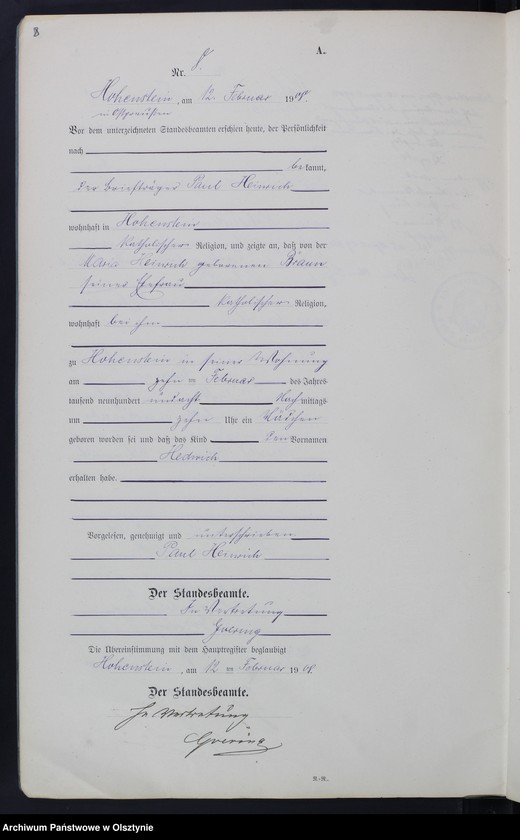 8
A.
Nr. 8.
Hohenstein, am 12 Februar 1908.
in Ostpreußen
Vor dem unterzeichneten Standesbeamten erschien heute, der Persönlichkeit
nach
bekannt,
der Briefträger Paul Heinrich
wohnhaft in Hohenstein
katholischer Religion, und zeigte an, daß von der
Maria Heinrich geborenen Braun
seiner Ehefrau
katholischer Religion,
wohnhaft bei ihm
zu Hohenstein in seiner Wohnung
am zehn ten Februar des Jahres
tausend neunhundert und acht Nach mittags
um zehn Uhr ein Mädchen
geboren worden sei und daß das Kind den Vornamen
Hedwich
erhalten habe.
Vorgelesen, genehmigt und unterschrieben
Paul Heinrich
Der Standesbeamte.
In Vertretung
Goering
Die Übereinstimmung mit dem Hauptregister beglaubigt
Hohenstein, am 12 ten Februar 1908.
Der Standesbeamte.
In Vertretung
Goering
R.-R.
Archiwum Państwowe w Olsztynie